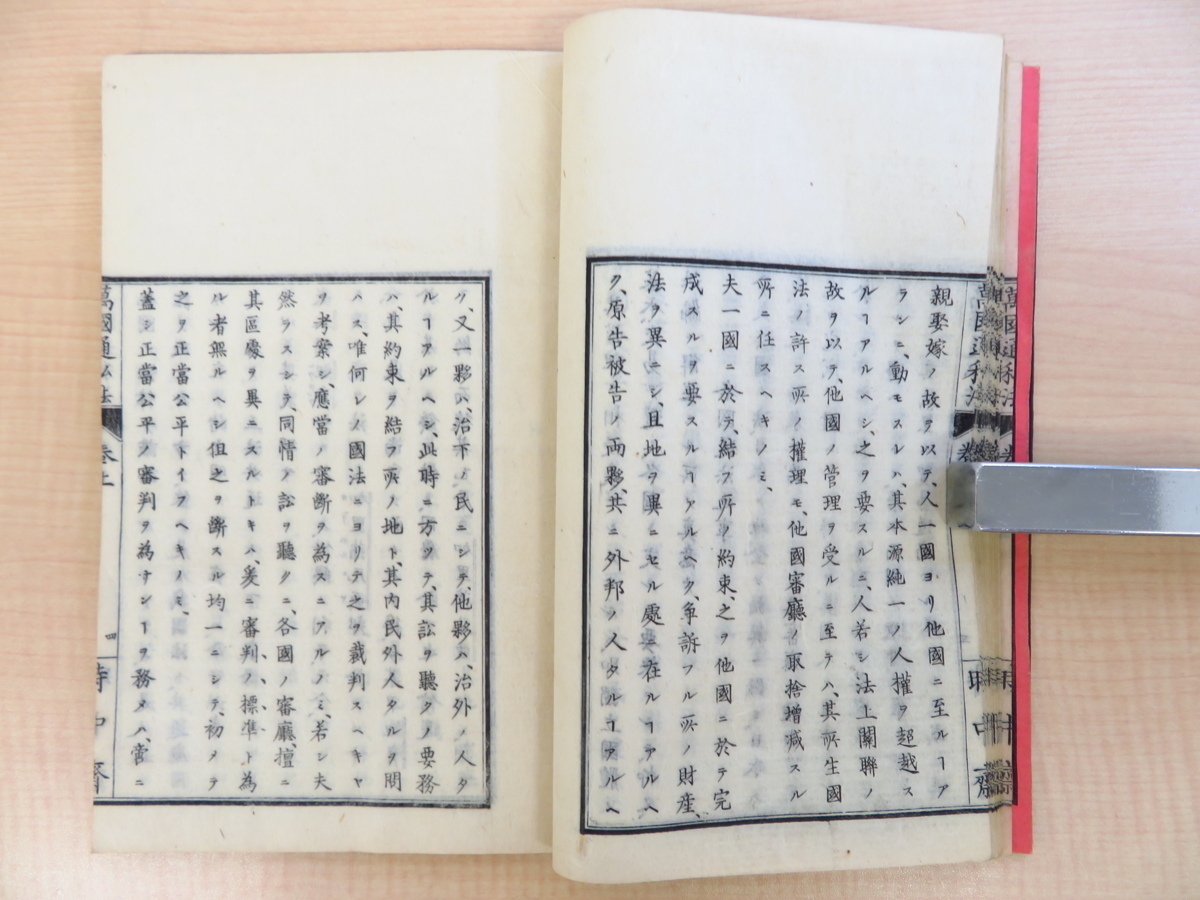 親娶嫁ノ故ヲ以テ、人一國ヨリ他國ニ至ルヿア
ランニ、動モスレハ、其本源純一ノ人權ヲ超越ス
ルヿアルヘシ、之ヲ要スルニ、人若シ法上關聯ノ
故ヲ以テ、他國ノ管理ヲ受ルニ至テハ、其所生國
法ノ許ス所ノ權理モ、他國審廳ノ取捨增減スル
所ニ任スヘキノミ、
夫一國ニ於テ、結フ所ノ約束、之ヲ他國ニ於テ完
成スルヲ要スルヿアルヘク、爭訴フル所ノ財產、
法ヲ異ニシ、且地ヲ異ニセル處ニ在ルヿアルヘ
ク、原告被告ノ兩夥、共ニ外邦ノ人タルヿアルヘ
ク、又一夥ハ、治下ノ民ニシテ、他夥ハ、治外ノ人タ
ルヿアルヘシ、此時ニ方ツテ、其訟ヲ聽クノ要務
ハ、其約束ヲ結フ所ノ地ト、其內民外人タルヲ問
ハス、唯何レノ國法ニヨリテ之ヲ裁判スヘキヤ
ヲ考案シ、應當ノ審斷ヲ為スニアルノミ、若シ夫
然ラスシテ、同情ノ訟ヲ聽クニ、各國ノ審廳、擅ニ
其區處ヲ異ニスルトキハ、爰ニ審判ノ標準ト為
ル者無ルヘシ但之ヲ斷スル均一ニシテ、初メテ
之ヲ正當公平トイフヘキノミ、
蓋シ正當公平ノ審判ヲ為サンヿヲ務メハ、啻ニ
萬國通私法
卷上
四
時中齋